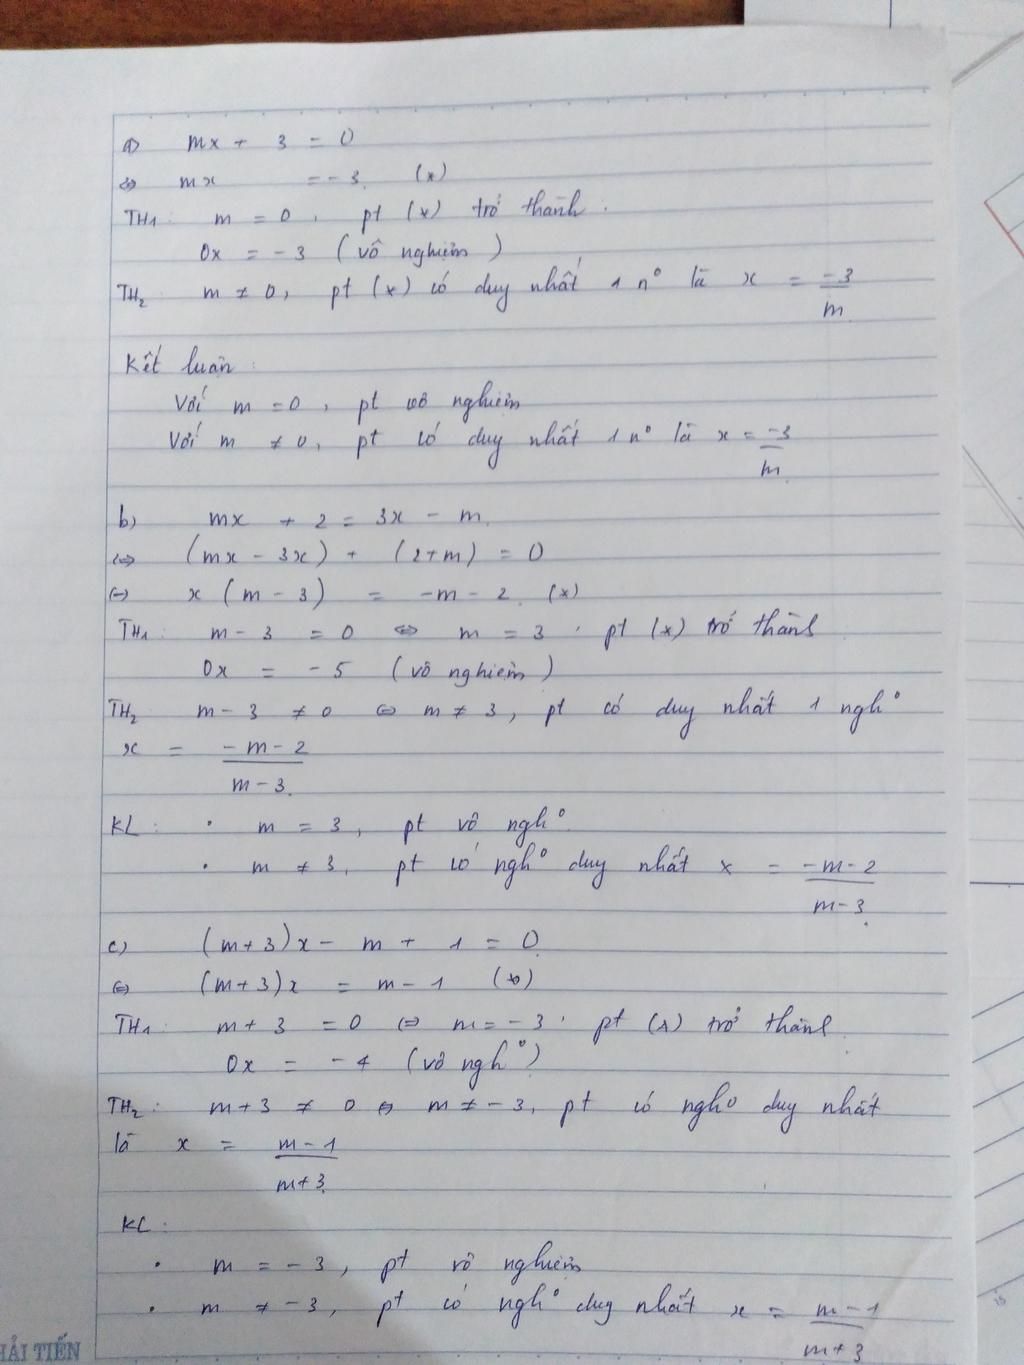 a) mx + 3 = 0
⇔ mx = -3. (*)
TH1: m = 0, pt (*) trở thành:
0x = -3 (vô nghiệm)
TH2 m ≠ 0, pt (*) có duy nhất 1 n° là x = -3/m
Kết luận:
Với m = 0, pt vô nghiệm
Với m ≠ 0, pt có duy nhất 1 n° là x = -3/m
b) mx + 2 = 3x - m.
⇔ (mx - 3x) + (2+m) = 0
⇔ x (m - 3) = -m - 2. (*)
TH1: m - 3 = 0 ⇔ m = 3. pt (*) trở thành
0x = -5 (vô nghiệm)
TH2 m - 3 ≠ 0 ⇔ m ≠ 3, pt có duy nhất 1 ngh°
x = -m - 2/m - 3.
KL: • m = 3, pt vô ngh°.
• m ≠ 3, pt có ngh° duy nhất x = -m-2/m-3.
c) (m+3)x - m + 1 = 0.
⇔ (m+3)x = m - 1 (*)
TH1: m + 3 = 0 ⇔ m = -3. pt (*) trở thành
0x = -4 (vô ngh°)
TH2: m+3 ≠ 0 ⇔ m ≠ -3, pt có ngh° duy nhất
là x = m - 1/m+3.
KL:
• m = -3, pt vô nghiệm
• m ≠ -3, pt có ngh° duy nhất x = m - 1/m+3
HẢI TIẾN